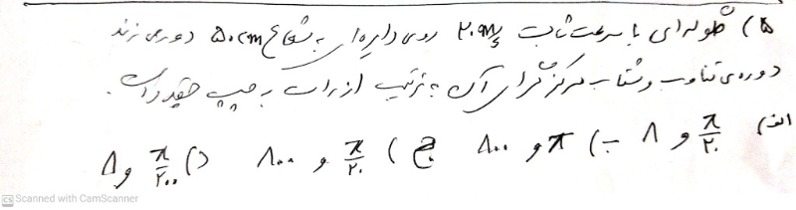 ۵) گلوله‌ای با سرعت ثابت ۲۰ m/s روی دایره‌ای به شعاع ۵۰ cm دور می‌زند
دوره‌ی تناوب و شتاب مرکزگرای آن به ترتیب از راست به چپ چقدر است.
الف) π/۲۰ و ۸ ب) π و ۸۰۰ ج) π/۲۰ و ۸۰۰ د) π/۲۰۰ و ۸
CS Scanned with CamScanner